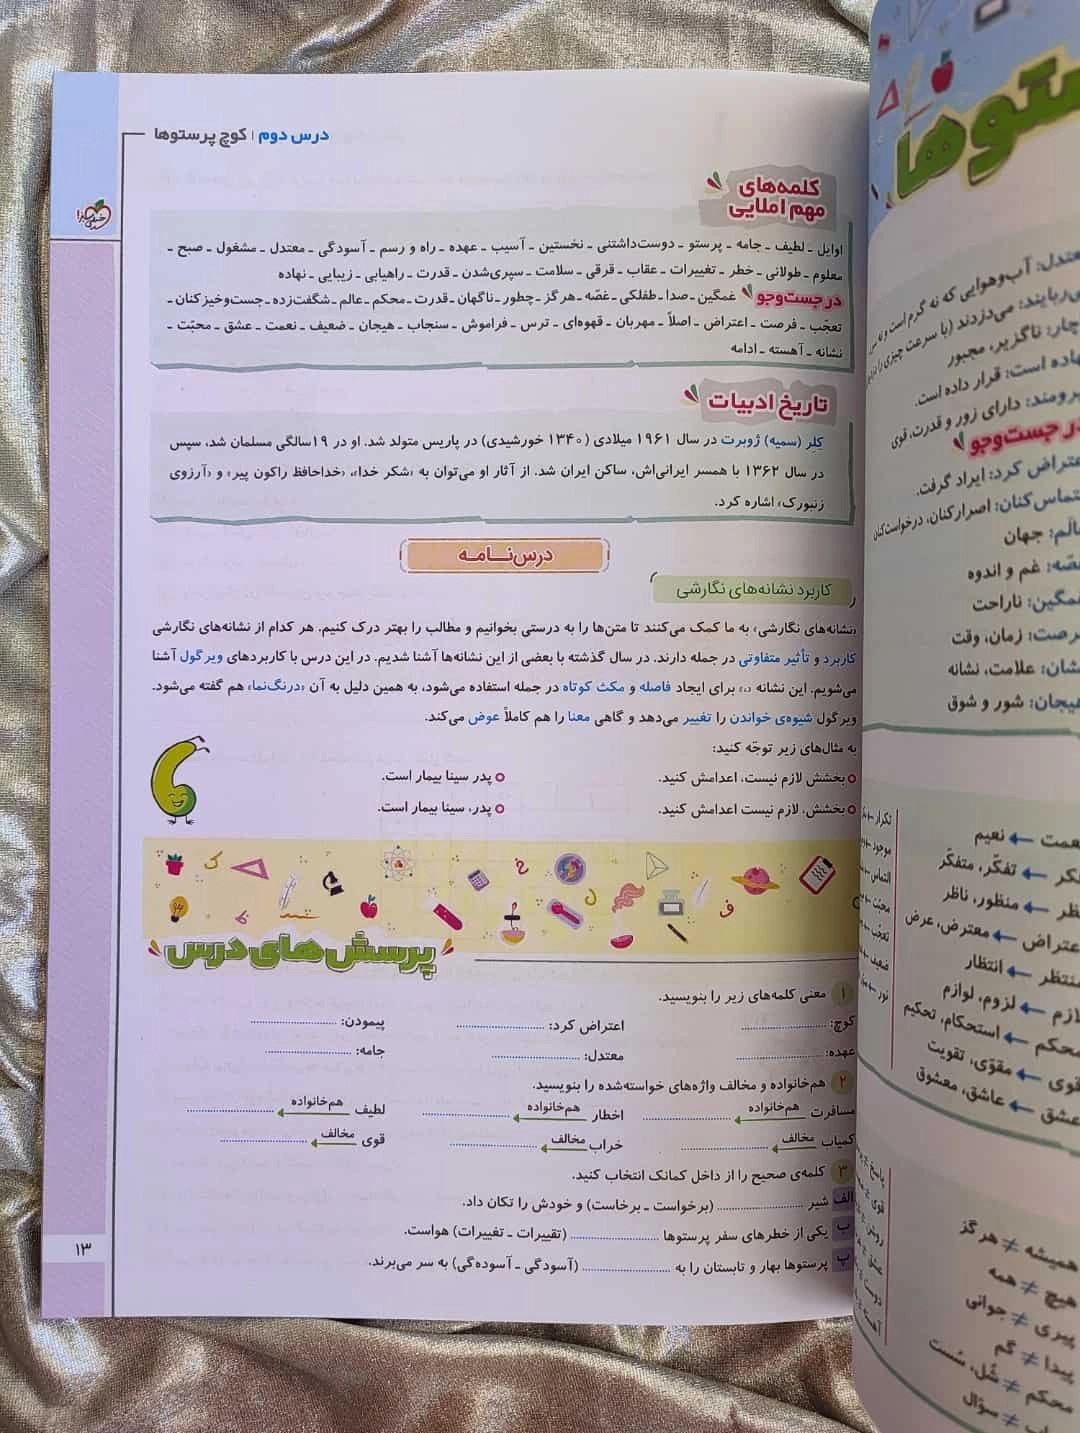 درس دوم | کوچ پرستوها
خیلی سبز
کلمه‌های
مهم املایی
اوایل ـ لطیف ـ جامه ـ پرستو ـ دوست‌داشتنی ـ نخستین ـ آسیب ـ عهده ـ راه و رسم ـ آسودگی ـ معتدل ـ مشغول ـ صبح ـ
معلوم ـ طولانی ـ خطر ـ تغییرات ـ عقاب ـ قرقی ـ سلامت ـ سپری‌شدن ـ قدرت ـ راهیابی ـ زیبایی ـ نهاده
در جست‌وجو غمگین ـ صدا ـ طفلکی ـ غصّه ـ هرگز ـ چطور ـ ناگهان ـ قدرت ـ محکم ـ عالم ـ شگفت‌زده ـ جست‌وخیزکنان ـ
تعجّب ـ فرصت ـ اعتراض ـ اصلاً ـ مهربان ـ قهوه‌ای ـ ترس ـ فراموش ـ سنجاب ـ هیجان ـ ضعیف ـ نعمت ـ عشق ـ محبّت ـ
نشانه ـ آهسته ـ ادامه
تاریخ ادبیات
کلِر (سمیه) ژوبرت در سال ۱۹۶۱ میلادی (۱۳۴۰ خورشیدی) در پاریس متولد شد. او در ۱۹سالگی مسلمان شد، سپس
در سال ۱۳۶۲ با همسر ایرانی‌اش، ساکن ایران شد. از آثار او می‌توان به «شکر خدا»، «خداحافظ راکون پیر» و «آرزوی
زنبورک» اشاره کرد.
درس‌نـــامـه
کاربرد نشانه‌های نگارشی
«نشانه‌های نگارشی» به ما کمک می‌کنند تا متن‌ها را به درستی بخوانیم و مطالب را بهتر درک کنیم. هر کدام از نشانه‌های نگارشی
کاربرد و تأثیر متفاوتی در جمله دارند. در سال گذشته با بعضی از این نشانه‌ها آشنا شدیم. در این درس با کاربردهای ویرگول آشنا
می‌شویم. این نشانه «،» برای ایجاد فاصله و مکث کوتاه در جمله استفاده می‌شود، به همین دلیل به آن «درنگ‌نما» هم گفته می‌شود.
ویرگول شیوه‌ی خواندن را تغییر می‌دهد و گاهی معنا را هم کاملاً عوض می‌کند.
به مثال‌های زیر توجّه کنید:
بخشش لازم نیست، اعدامش کنید. پدر سینا بیمار است.
بخشش، لازم نیست اعدامش کنید. پدر، سینا بیمار است.
پرسش‌های درس
۱ معنی کلمه‌های زیر را بنویسید.
کوچ: .................... اعتراض کرد: .................... پیمودن: ....................
عهده: .................... معتدل: .................... جامه: ....................
۲ هم‌خانواده و مخالف واژه‌های خواسته‌شده را بنویسید.
مسافرت هم‌خانواده .................... اخطار هم‌خانواده .................... لطیف هم‌خانواده ....................
کمیاب مخالف .................... خراب مخالف .................... قوی مخالف ....................
۳ کلمه‌ی صحیح را از داخل کمانک انتخاب کنید.
الف شیر .................... (برخواست ـ برخاست) و خودش را تکان داد.
ب یکی از خطرهای سفر پرستوها .................... (تقییرات ـ تغییرات) هواست.
پ پرستوها بهار و تابستان را به .................... (آسودگی ـ آسوده‌گی) به سر می‌برند.
۱۳
ستوها
معتدل: آب‌وهوایی که نه گرم است و نه سرد
می‌ربایند: می‌دزدند (با سرعت چیزی را
ناچار: ناگزیر، مجبور
نهاده است: قرار داده است.
نیرومند: دارای زور و قدرت، قوی
در جست‌وجو
اعتراض کرد: ایراد گرفت.
التماس‌کنان: اصرارکنان، درخواست‌کنان
عالَم: جهان
غصّه: غم و اندوه
غمگین: ناراحت
فرصت: زمان، وقت
نشان: علامت، نشانه
هیجان: شور و شوق
نعمت ← نعیم
فکر ← تفکّر، متفکّر
نظر ← منظور، ناظر
اعتراض ← معترض، عرض
منتظر ← انتظار
لازم ← لزوم، لوازم
محکم ← استحکام، تحکیم
قوی ← مقوّی، تقویت
عشق ← عاشق، معشوق
همیشه ≠ هرگز
هیچ ≠ همه
پیری ≠ جوانی
پیدا ≠ گم
محکم ≠ شُل، سُست
≠ سؤال